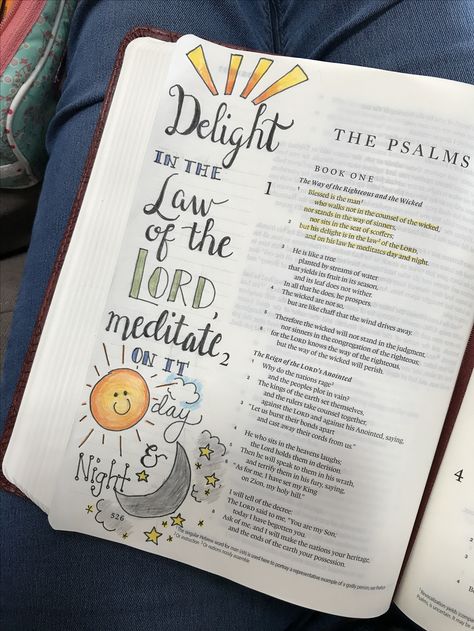 Delight
IN THE
Law
of the
LORD,
meditate
ON IT
day
&
Night
526
THE PSALMS
BOOK ONE
The Way of the Righteous and the Wicked
1
1 Blessed is the man1
who walks not in the counsel of the wicked,
nor stands in the way of sinners,
nor sits in the seat of scoffers;
2 but his delight is in the law2 of the LORD,
and on his law he meditates day and night.
3 He is like a tree
planted by streams of water
that yields its fruit in its season,
and its leaf does not wither.
In all that he does, he prospers.
4 The wicked are not so,
but are like chaff that the wind drives away.
5 Therefore the wicked will not stand in the judgment,
nor sinners in the congregation of the righteous;
6 for the LORD knows the way of the righteous,
but the way of the wicked will perish.
The Reign of the LORD's Anointed
2
1 Why do the nations rage3
and the peoples plot in vain?
2 The kings of the earth set themselves,
and the rulers take counsel together,
against the LORD and against his Anointed, saying,
3 "Let us burst their bonds apart
and cast away their cords from us."
4 He who sits in the heavens laughs;
the Lord holds them in derision.
5 Then he will speak to them in his wrath,
and terrify them in his fury, saying,
6 "As for me, I have set my King
on Zion, my holy hill."
7 I will tell of the decree:
The LORD said to me, "You are my Son;
today I have begotten you.
8 Ask of me, and I will make the nations your heritage,
and the ends of the earth your possession.
singular Hebrew word for man (ish) is used here to portray a representative example of a godly person; see Preface
2 Or instruction 3 Or nations noisily assemble
4